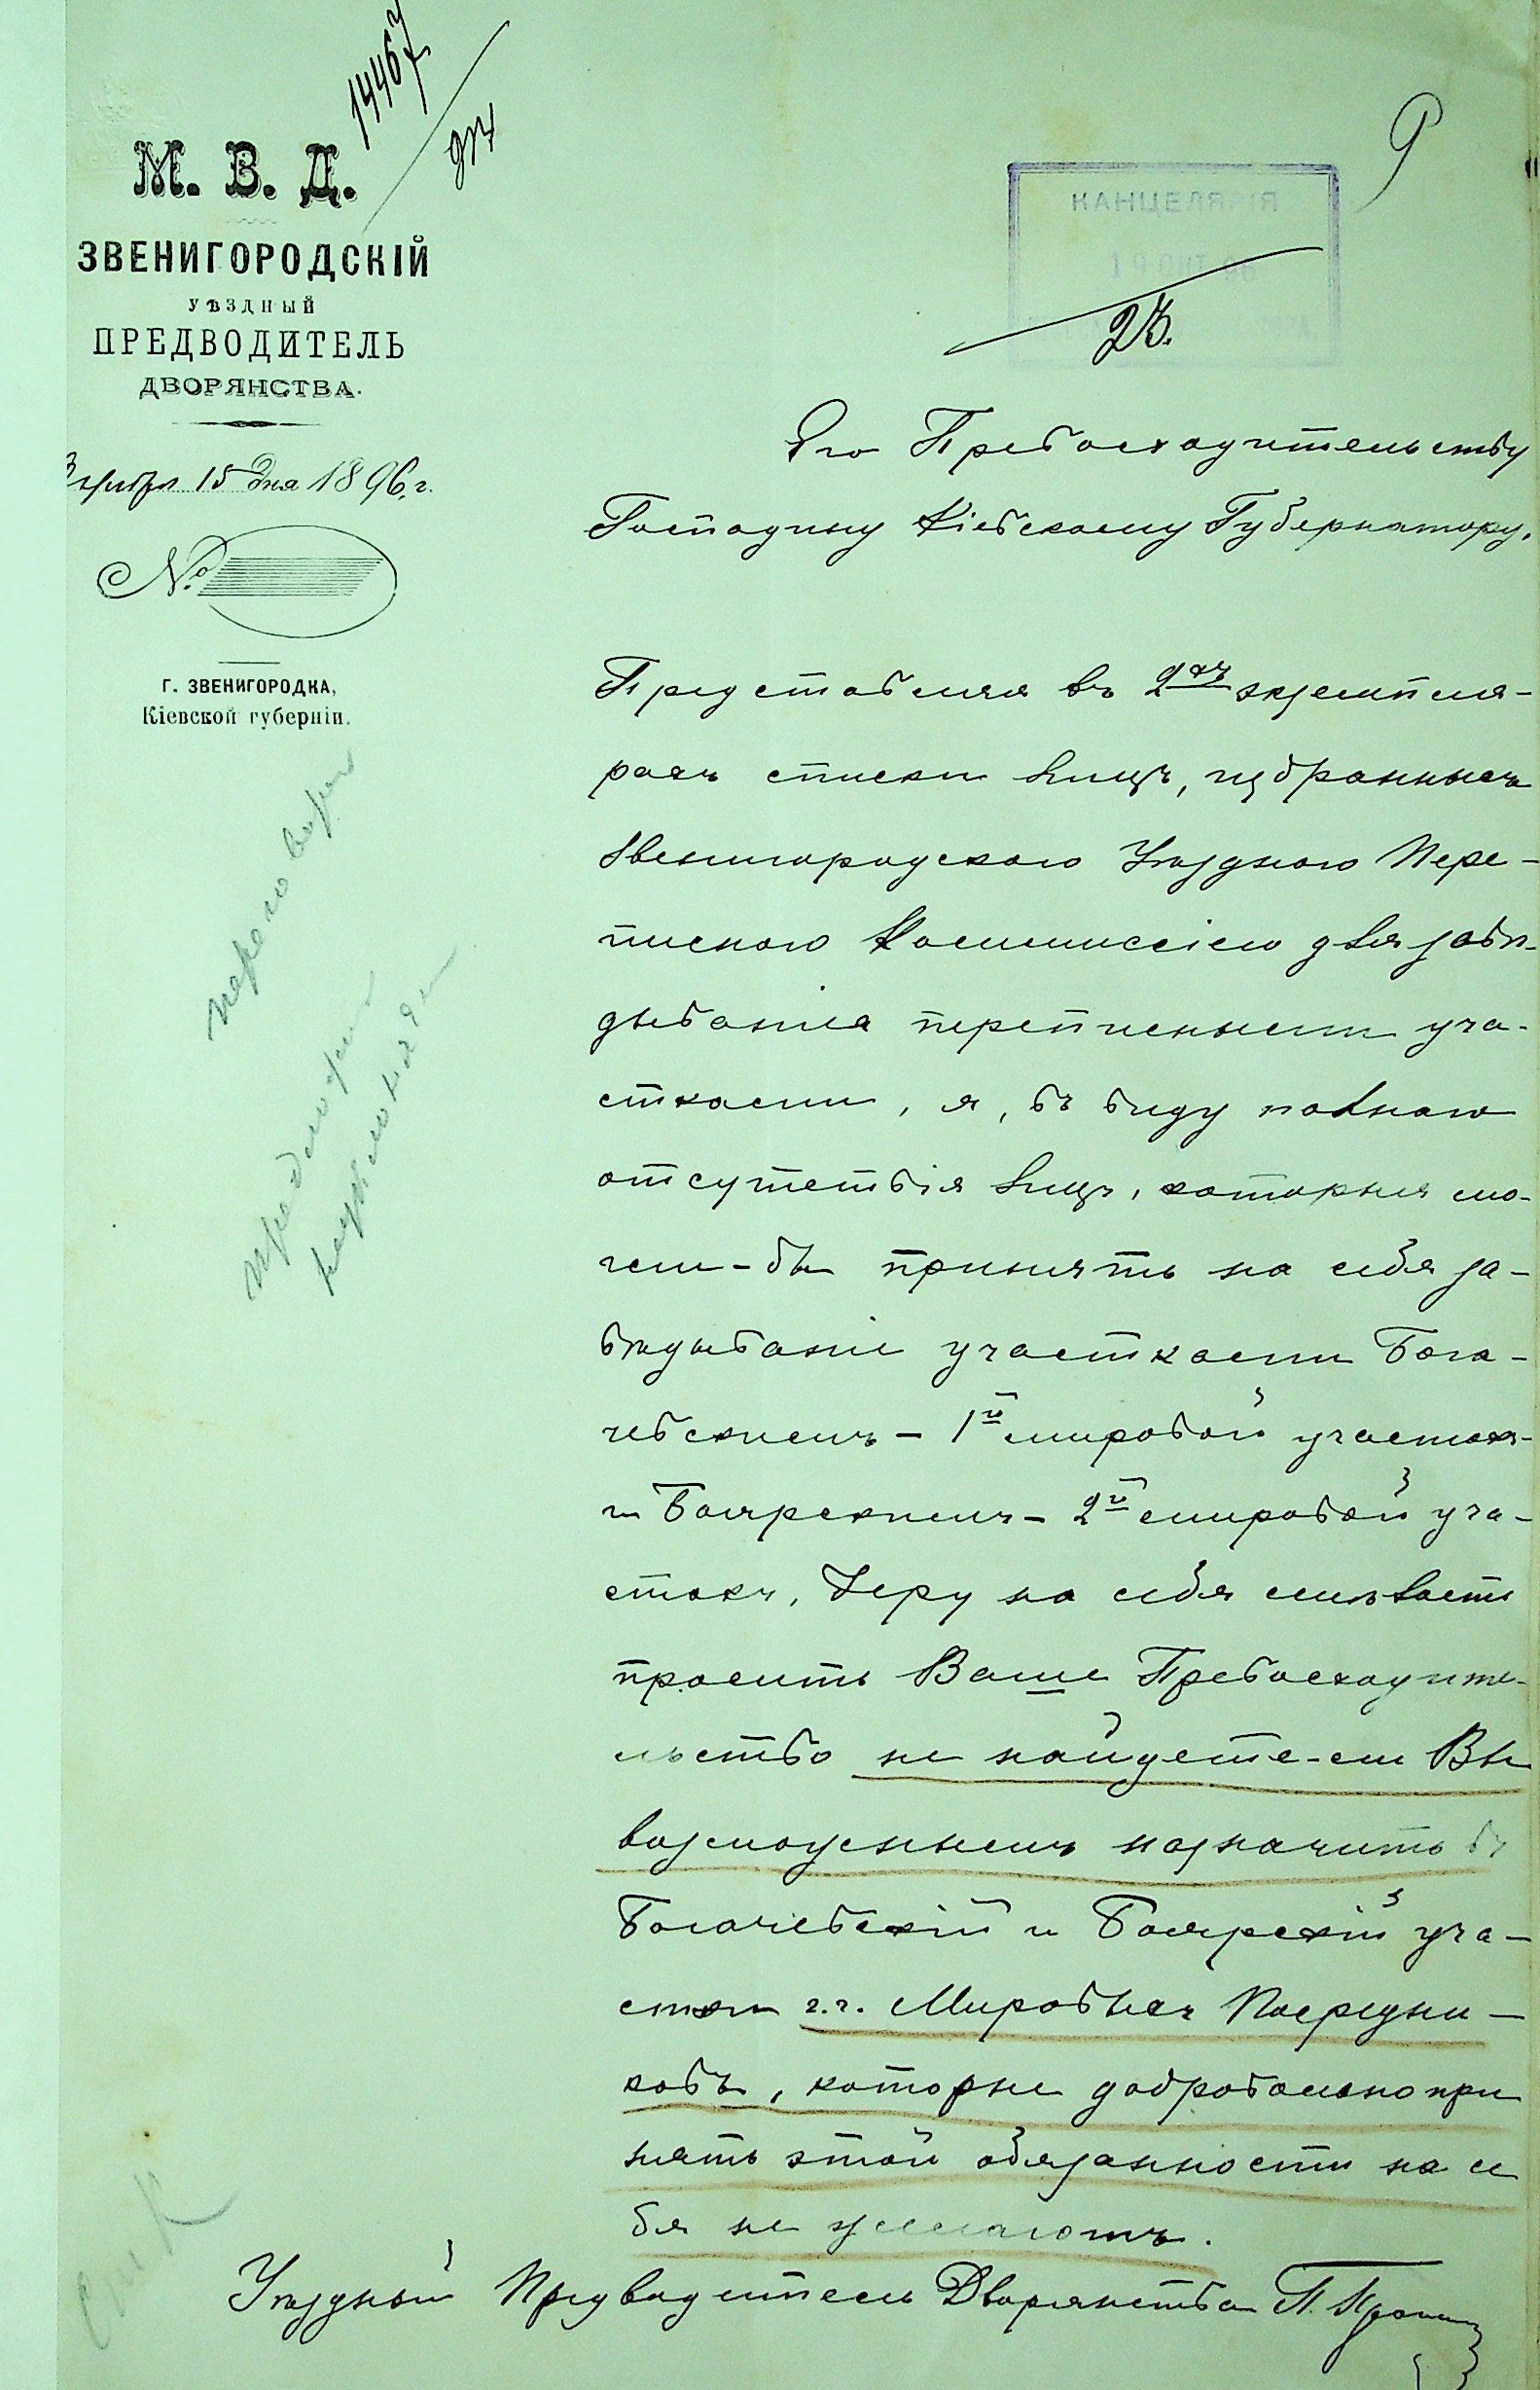 14467
М. В. Д.
ЗВЕНИГОРОДСКІЙ
УѢЗДНЫЙ
ПРЕДВОДИТЕЛЬ
ДВОРЯНСТВА.
15 дня 1896 г.
№
Г. ЗВЕНИГОРОДКА,
Кіевской губерніи.
9
КАНЦЕЛЯРІЯ
19 ОКТ. 96
23.
Его Превосходительству
Господину Кіевскому Губернатору.
Представляя въ 2хъ экземпля-
рахъ списки лицъ, избранныхъ
Звенигородскою Уѣздною Пере-
писною Коммиссіею для завѣ-
дыванія переписными уча-
стками, я, въ виду полнаго
отсутствія лицъ, которыя мо-
гли-бы принять на себя за-
вѣдываніе участками Бога-
чевскимъ – 1й мировой участокъ
и Боярскимъ – 2й мировой уча-
стокъ, беру на себя смѣлость
просить Ваше Превосходите-
льство не найдете-ли Вы
возможнымъ назначить въ
Богачевскій и Боярскій уча-
стки г.г. Мировыхъ Посредни-
ковъ, которые добровольно при
нять этой обязанности на се
бя не желаютъ.
Уѣздный Предводитель Дворянства П.